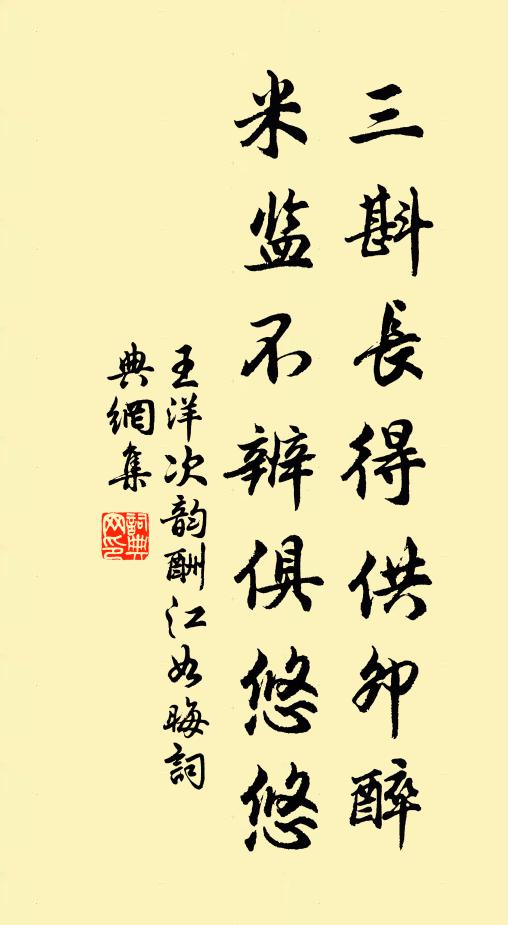 三斟長得供卯醉
米监不辨俱悠悠
王洋次韵酬江如晦詞
典網集
詞典
网印